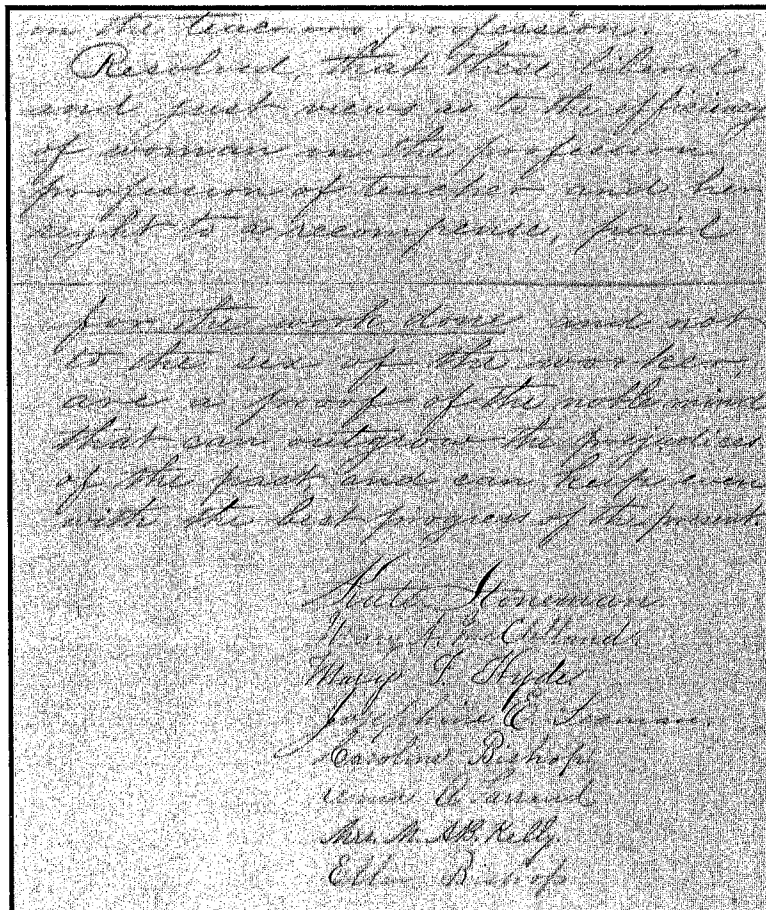 in the teachers profession.
Resolved, that these liberal
and just views as to the efficiency
of woman in the profession
profession of teacher and her
right to a recompense, paid
for the work done and not
to the sex of the worker,
are a proof of the noble mind
that can outgrow the prejudices
of the past and can keep even
with the best progress of the present.
Kate Stoneman
Mary A. McClelland
Mary F. Hyde
Josephine E. Seaman.
Caroline Bishop
A.
Mrs. M. A. B. Kelly.
Ellen Bishop